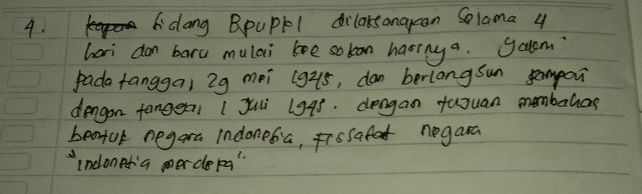 4. sidang Bpupki dilaksanakan selama 4
hari dan baru mulai kee sokan harinya. yaitu
pada tanggal 29 mei 1945, dan berlangsun sampai
dengan tanggal 1 Juli 1945. dengan tujuan membahas
bentuk negara Indonesia, Fissafat negara
"indonesia merdeka".